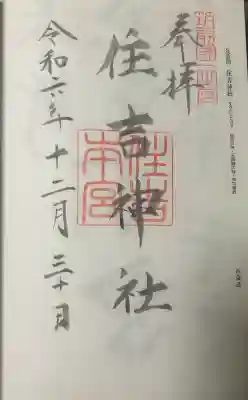 奉拝
住吉神社
令和六年十二月三十日
筑前國一之宮
住吉本宮